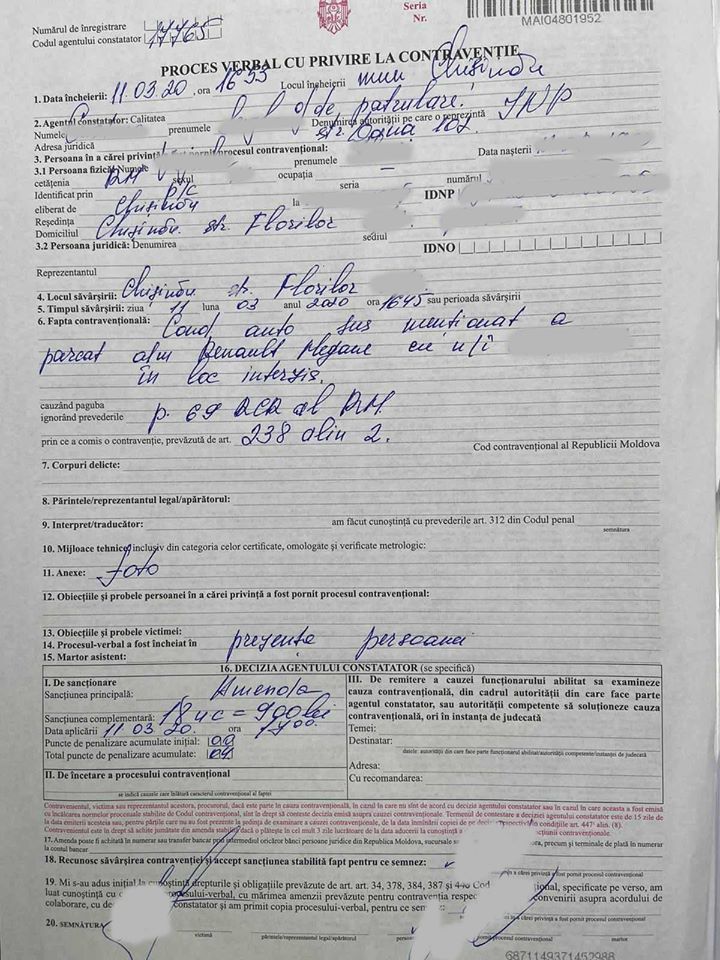 Seria
Nr.
MAI04801952
Numărul de înregistrare
Codul agentului constatator 17765
PROCES VERBAL CU PRIVIRE LA CONTRAVENȚIE
1. Data încheierii: 11.03.20, ora 16 55 Locul încheierii mun Chișinău
2. Agentul constatator: Calitatea de patrulare.
Numele prenumele Denumirea autorității pe care o reprezintă INP
Adresa juridică str. Doina 102
3. Persoana în a cărei privință a fost pornit procesul contravențional:
3.1 Persoana fizică: Numele prenumele Data nașterii
cetățenia RM sexul ocupația –
Identificat prin seria numărul
eliberat de Chișinău la IDNP
Reședința
Domiciliul Chișinău str. Florilor
3.2 Persoana juridică: Denumirea sediul IDNO
Reprezentantul
4. Locul săvârșirii: Chișinău str. Florilor
5. Timpul săvârșirii: ziua 11 luna 03 anul 2020 ora 1645 sau perioada săvârșirii
6. Fapta contravențională: Cond auto sus mentionat a
parcat a/m Renault Megane cu n/î
în loc interzis.
cauzând paguba
ignorând prevederile p. 69 RCR al RM
prin ce a comis o contravenție, prevăzută de art. 238 alin 2.
Cod contravențional al Republicii Moldova
7. Corpuri delicte:
8. Părintele/reprezentantul legal/apărătorul:
9. Interpret/traducător: am făcut cunoștință cu prevederile art. 312 din Codul penal
semnătura
10. Mijloace tehnice, inclusiv din categoria celor certificate, omologate și verificate metrologic:
11. Anexe: foto
12. Obiecțiile și probele persoanei în a cărei privință a fost pornit procesul contravențional:
13. Obiecțiile și probele victimei:
14. Procesul-verbal a fost încheiat în prezența persoanei
15. Martor asistent:
16. DECIZIA AGENTULUI CONSTATATOR (se specifică)
I. De sancționare
Sancțiunea principală: Amenda
Sancțiunea complementară: 18 uc = 900 lei
Data aplicării 11 03 20. ora 1700.
Puncte de penalizare acumulate inițial: 00
Total puncte de penalizare acumulate: 04
II. De încetare a procesului contravențional
se indică cauzele care înlătură caracterul contravențional al faptei
III. De remitere a cauzei funcționarului abilitat sa examineze
cauza contravențională, din cadrul autorității din care face parte
agentul constatator, sau autorității competente să soluționeze cauza
contravențională, ori în instanța de judecată
Temei:
Destinatar:
datele: autorității din care face parte funcționarul abilitat/autorității competente/instanței de judecată
Adresa:
Cu recomandarea:
Contravenientul, victima sau reprezentantul acestora, procurorul, dacă este parte în cauza contravențională, în cazul în care nu sînt de acord cu decizia agentului constatator sau în cazul în care aceasta a fost emisă
cu încălcarea normelor procesuale stabilite de Codul contravențional, sînt în drept să conteste decizia emisă asupra cauzei contravenționale. Termenul de contestare a deciziei agentului constatator este de 15 zile de
la data emiterii acesteia sau, pentru părțile care nu au fost prezente la ședința de examinare a cauzei contravenționale, de la data înmînării copiei de pe decizia respectivă în condițiile art. 447¹ alin. (8).
Contravenientul este în drept să achite jumătate din amenda stabilită dacă o plătește în cel mult 3 zile lucrătoare de la data aducerii la cunoștință a
17. Amenda poate fi achitată în numerar sau transfer bancar prin intermediul oricăror bănci persoane juridice din Republica Moldova, sucursale precum și terminale de plată în numerar
la contul bancar
18. Recunosc săvârșirea contravenției și accept sancțiunea stabilită fapt pentru ce semnez:
19. Mi s-au adus inițial la cunoștință drepturile și obligațiile prevăzute de art. art. 34, 378, 384, 387 și 448 Cod specificate pe verso, am
luat cunoștință cu procesului-verbal, cu mărimea amenzii prevăzute pentru contravenția convenirii asupra acordului de
colaborare, cu de constatator și am primit copia procesului-verbal, pentru ce
20. SEMNĂTURA
victimă părintele/reprezentantul legal/apărătorul martor
6871149371452988